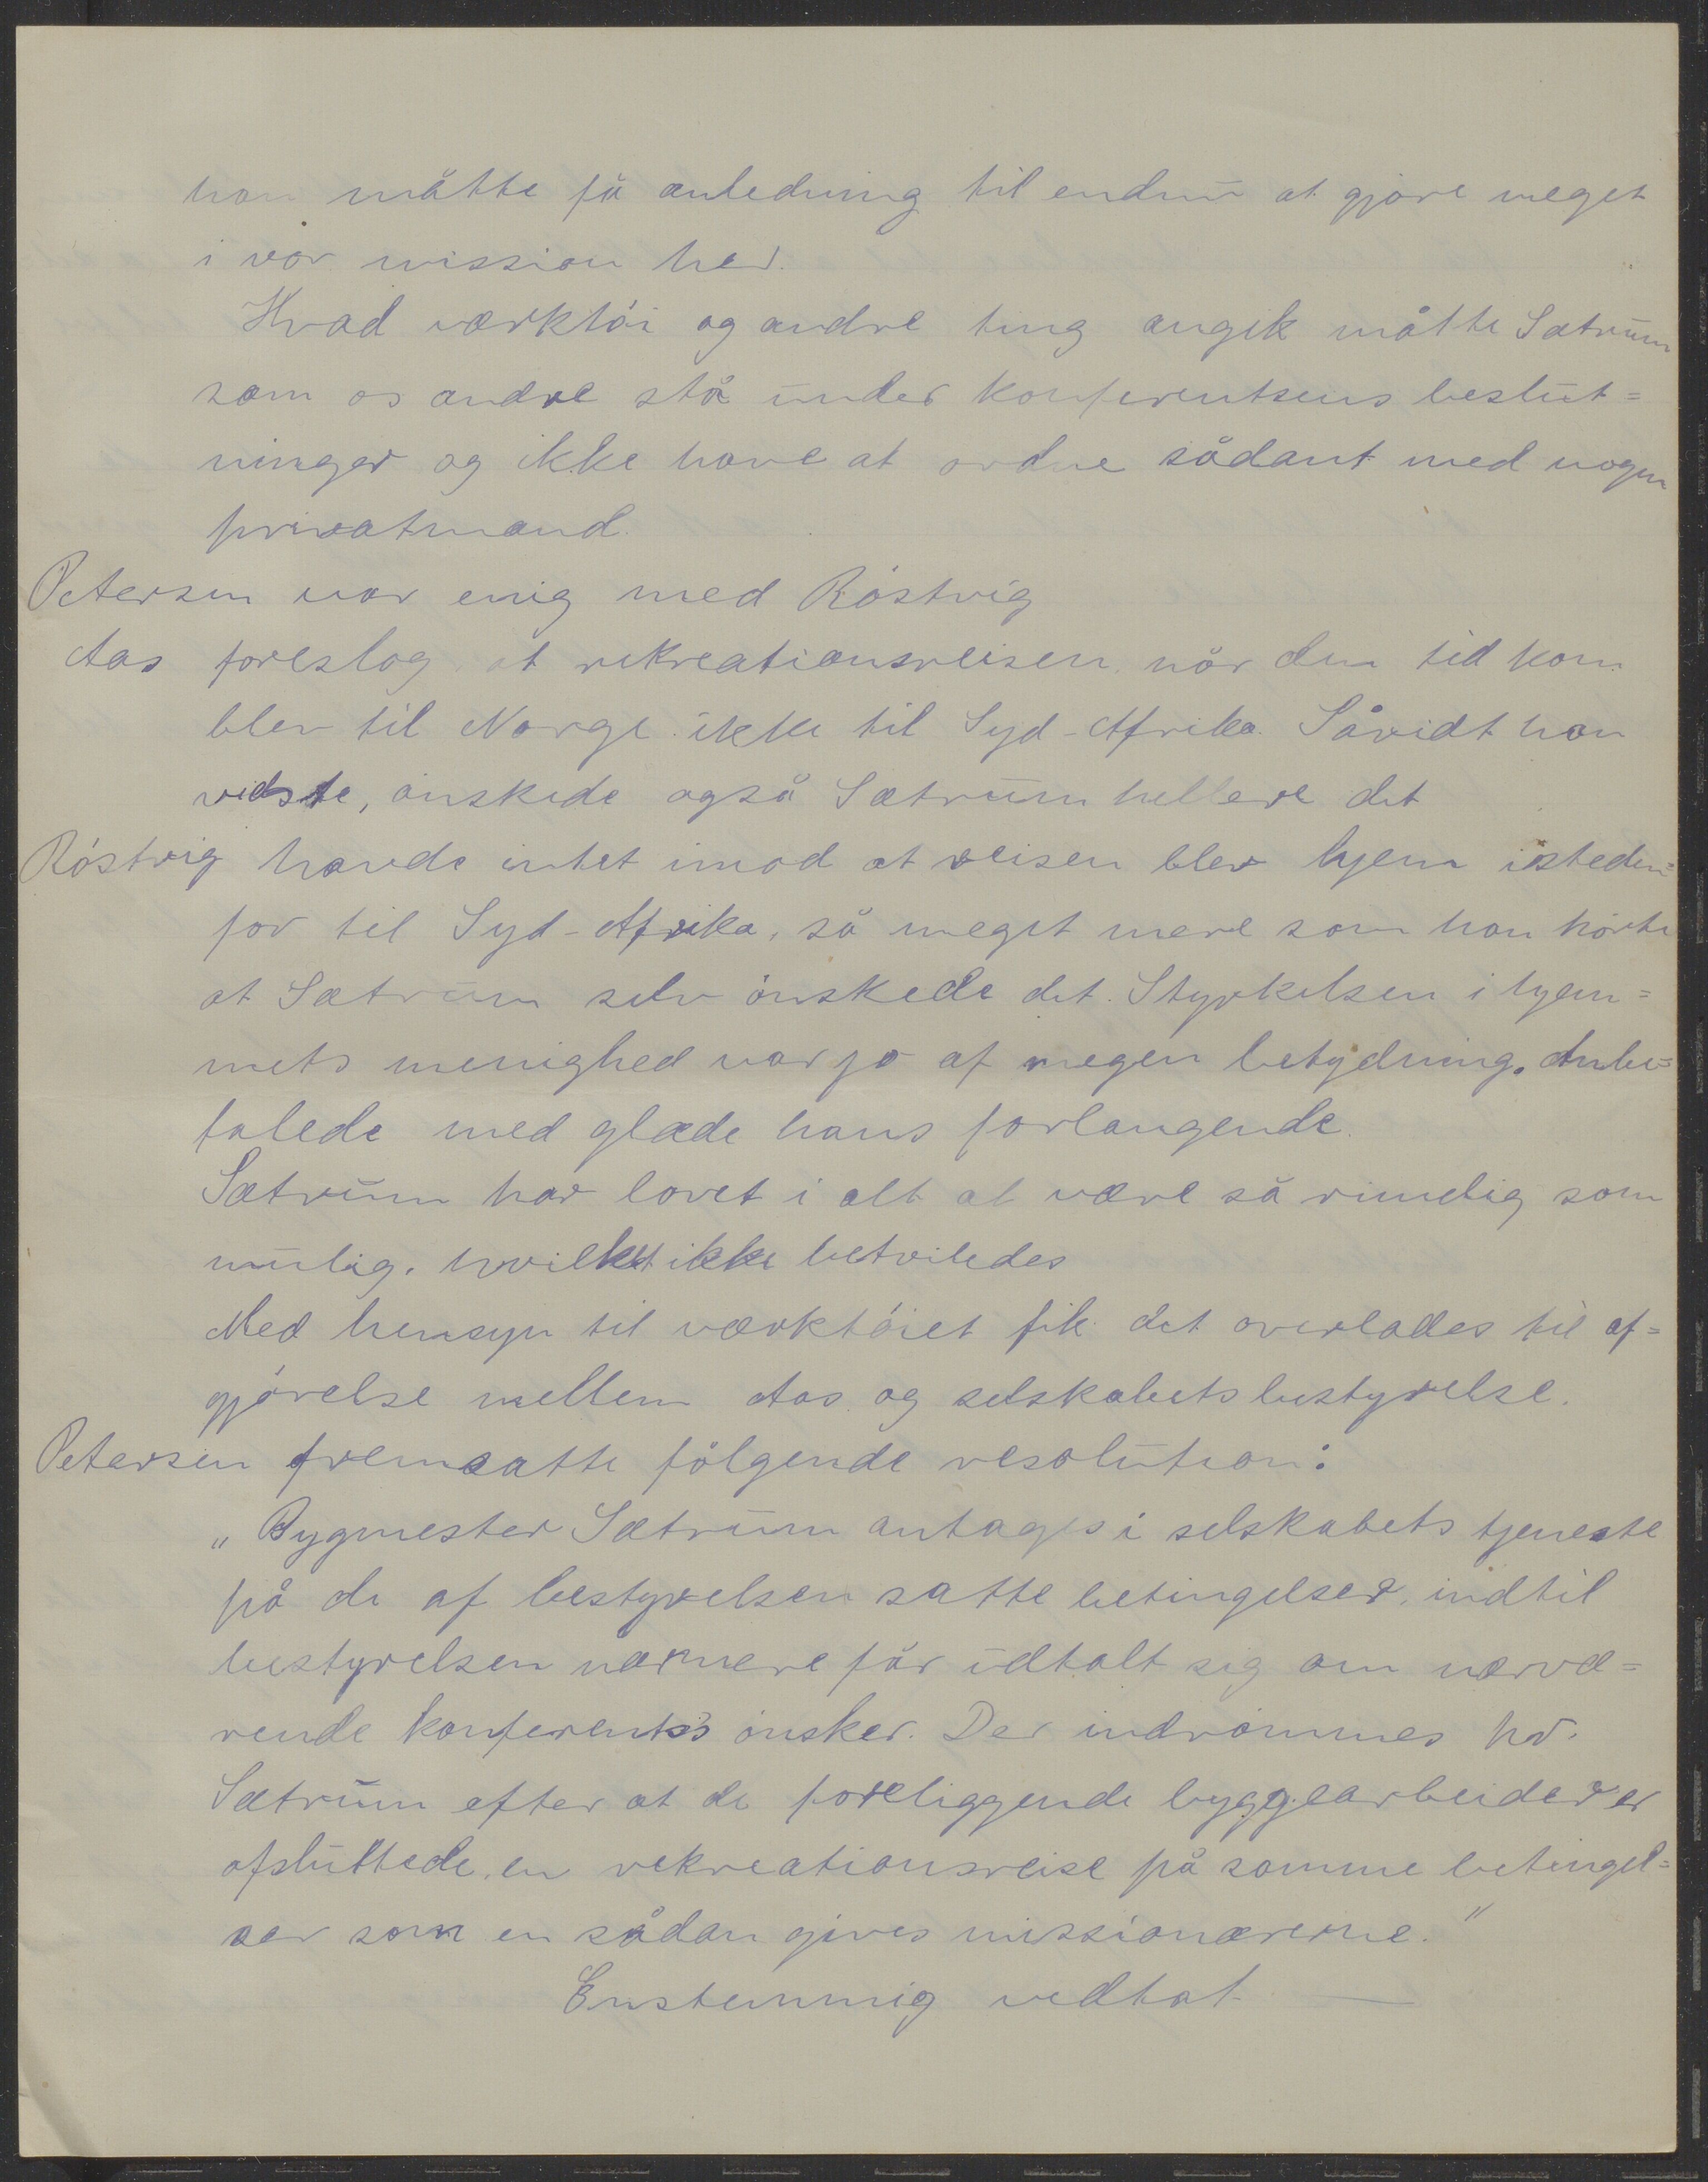 han måtte få anledning til endnu at gjöre meget
i vor mission her.
Hvad værktöi og andre ting angik måtte Sætrum
som os andre stå under konferentsens beslut=
ninger og ikke have at ordne sådant med nogen
privatmand.
Petersen var enig med Röstvig
Aas foreslog, at rekreationsreisen, når den tid kom
blev til Norge. ikke til Syd-Afrika. Såvidt han
vidste, önskede også Sætrum hellere det
Röstvig havde intet imod at reisen blev hjem isteden=
for til Syd-Afrika, så meget mere som han hörte
at Sætrum selv önskede det. Styrkelsen i hjem=
mets menighed var jo af megen betydning. Anbe=
falede med glæde hans forlangende.
Sætrum har lovet i alt at være så rimelig som
mulig. hvilket ikke betviledes
Med hensyn til værktöiet fik det overlades til af=
gjörelse mellem Aas og selskabets bestyrelse.
Petersen fremsatte fölgende resolution:
„Bygmester Sætrum antages i selskabets tjeneste
på de af bestyrelsen satte betingelser, indtil
bestyrelsen nærmere får udtalt sig om nærvæ=
rende konferents's önsker. Der indrömmes hr.
Sætrum efter at de foreliggende byggearbeider er
afsluttede, en rekreationsreise på samme betingel=
ser som en sådan gives missionærerne."
Enstemmig vedtat —